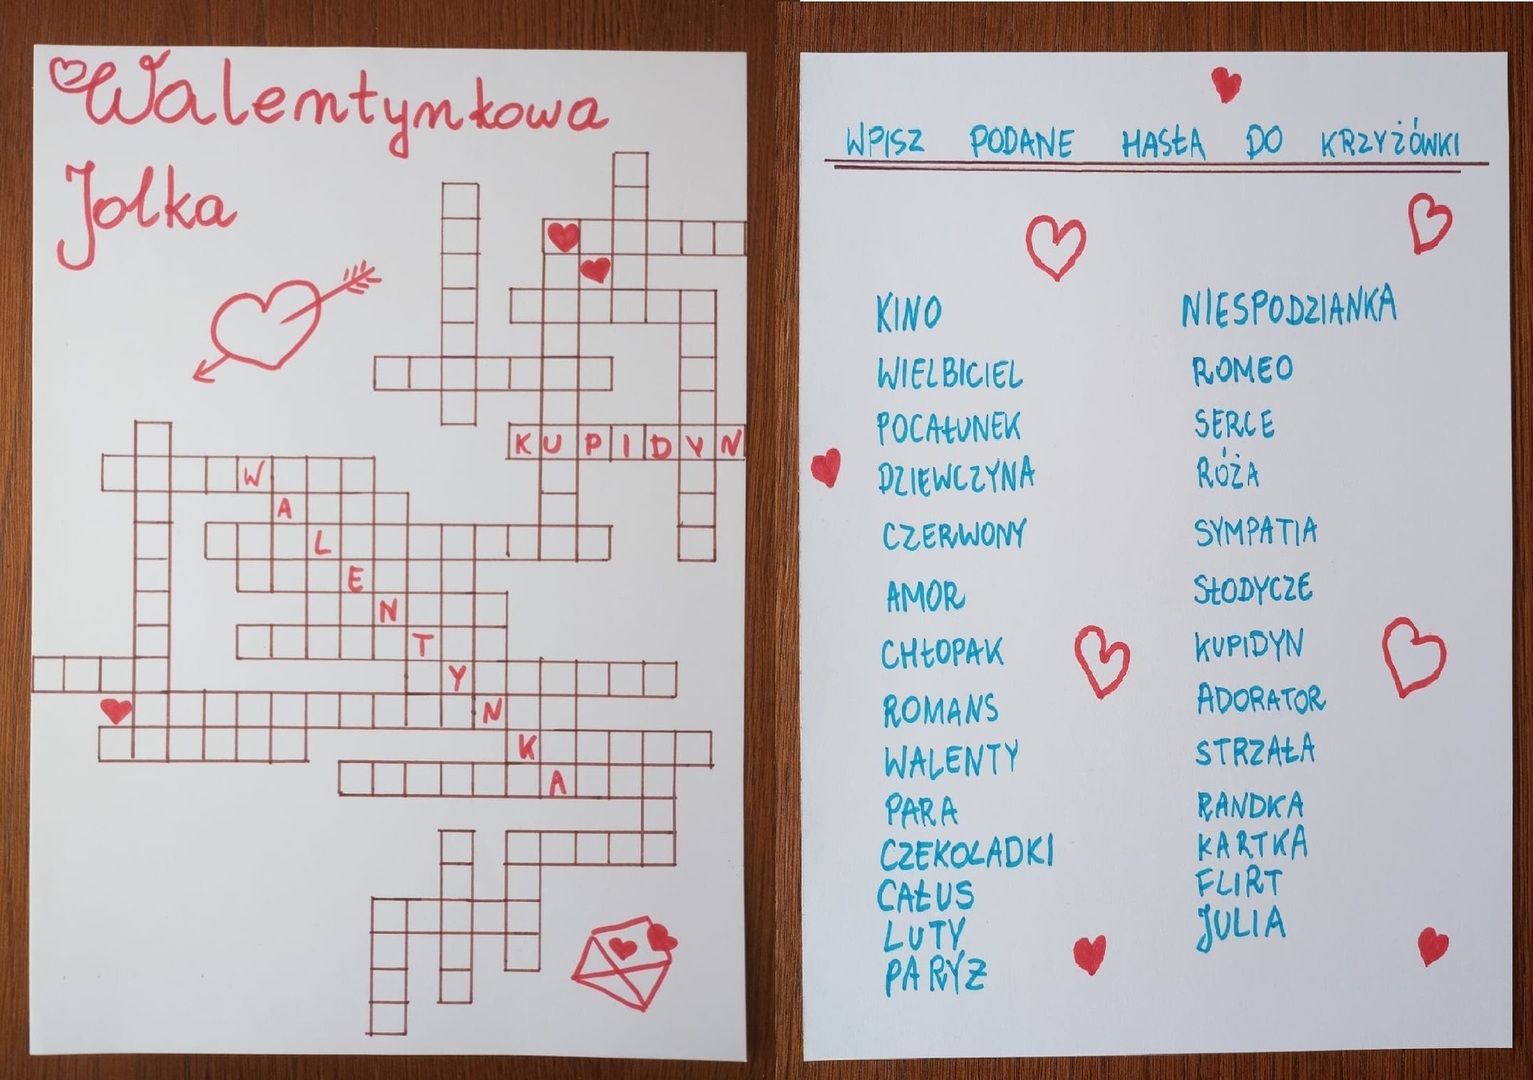 Walentynkowa
Jolka
KUPIDYN
W
A
L
E
N
T
Y
N
K
A
WPISZ PODANE HASŁA DO KRZYŻÓWKI
KINO
WIELBICIEL
POCAŁUNEK
DZIEWCZYNA
CZERWONY
AMOR
CHŁOPAK
ROMANS
WALENTY
PARA
CZEKOLADKI
CAŁUS
LUTY
PARYŻ
NIESPODZIANKA
ROMEO
SERCE
RÓŻA
SYMPATIA
SŁODYCZE
KUPIDYN
ADORATOR
STRZAŁA
RANDKA
KARTKA
FLIRT
JULIA